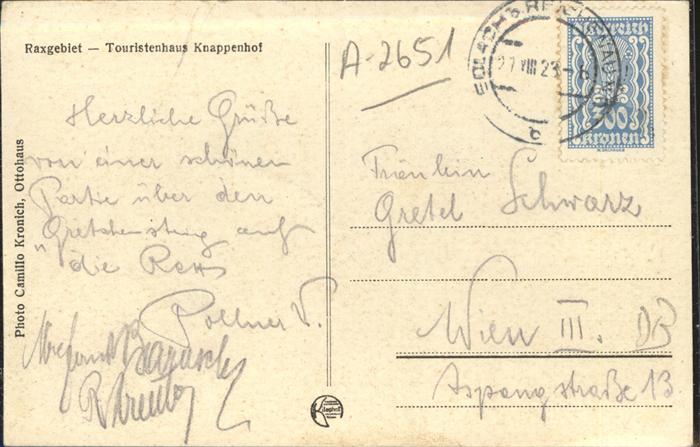 Raxgebiet — Touristenhaus Knappenhof
A-2651
27 VIII 23
300
Kronen
Photo Camillo Kronich, Ottohaus
Herzliche Grüße
von einer schönen
Partie über den
Gretchensteig auf
die Rax
Pollner V.
Fräulein
Gretel Schwarz
Wien III.
Aspangstraße 13